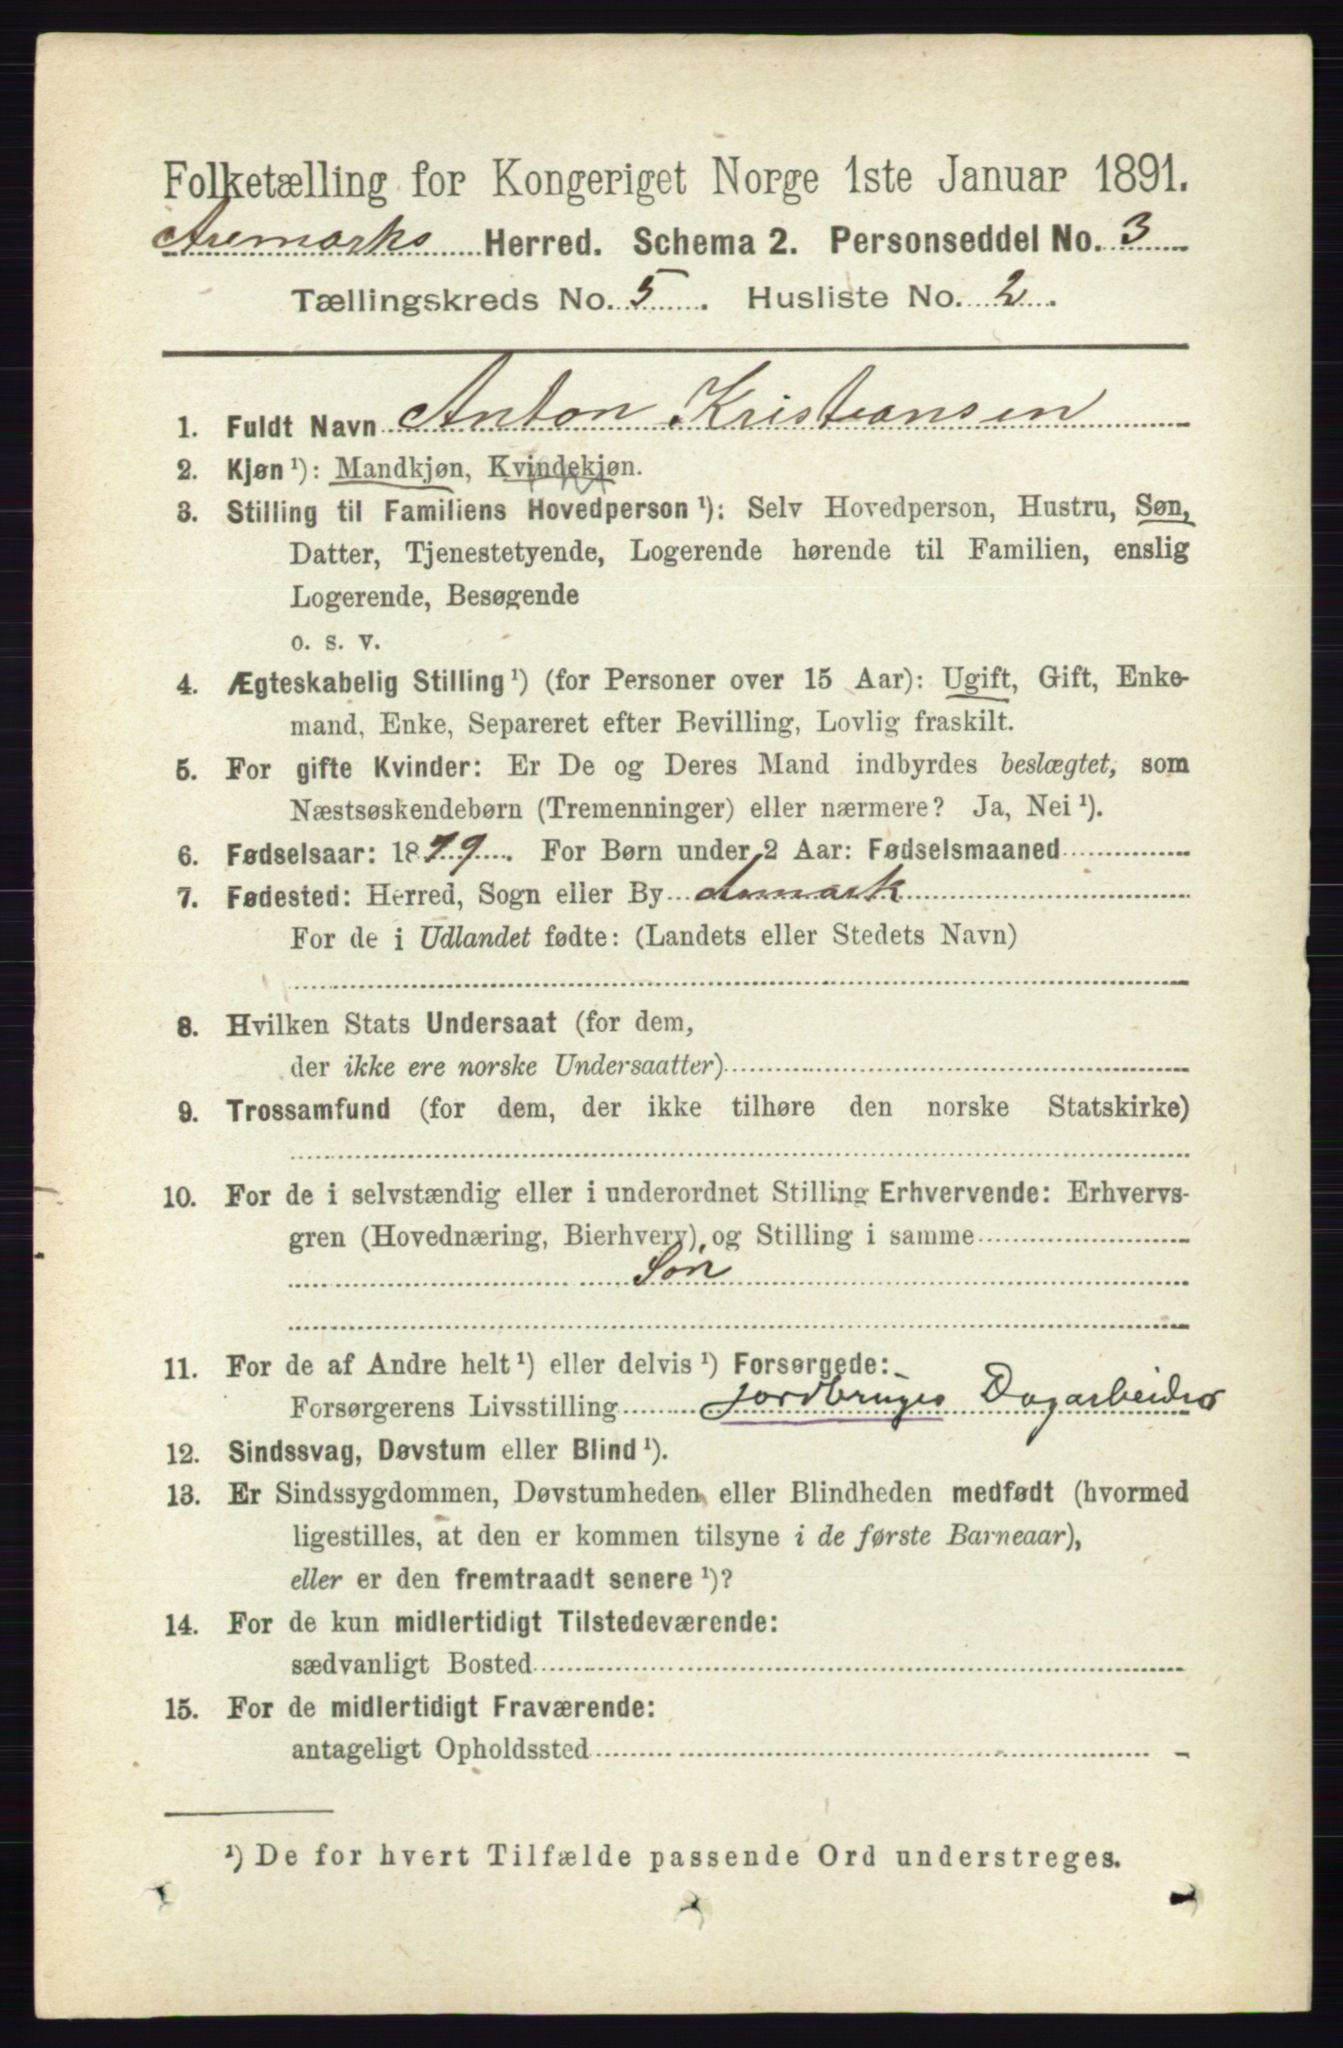 Folketælling for Kongeriget Norge 1ste Januar 1891.
Aremarks Herred. Schema 2. Personseddel No. 3
Tællingskreds No. 5. Husliste No. 2.
1. Fuldt Navn Anton Kristiansen
2. Kjøn¹): Mandkjøn, Kvindekjøn.
3. Stilling til Familiens Hovedperson¹): Selv Hovedperson, Hustru, Søn,
Datter, Tjenestetyende, Logerende hørende til Familien, enslig
Logerende, Besøgende
o. s. v.
4. Ægteskabelig Stilling¹) (for Personer over 15 Aar): Ugift, Gift, Enke-
mand, Enke, Separeret efter Bevilling, Lovlig fraskilt.
5. For gifte Kvinder: Er De og Deres Mand indbyrdes beslægtet, som
Næstsøskendebørn (Tremenninger) eller nærmere? Ja, Nei¹).
6. Fødselsaar: 1879. For Børn under 2 Aar: Fødselsmaaned
7. Fødested: Herred, Sogn eller By Armark
For de i Udlandet fødte: (Landets eller Stedets Navn)
8. Hvilken Stats Undersaat (for dem,
der ikke ere norske Undersaatter)
9. Trossamfund (for dem, der ikke tilhøre den norske Statskirke)
10. For de i selvstændig eller i underordnet Stilling Erhvervende: Erhvervs-
gren (Hovednæring, Bierhverv) og Stilling i samme
Søn
11. For de af Andre helt¹) eller delvis¹) Forsørgede:
Forsørgerens Livsstilling Jordbruges Dagarbeider
12. Sindssvag, Døvstum eller Blind¹).
13. Er Sindssygdommen, Døvstumheden eller Blindheden medfødt (hvormed
ligestilles, at den er kommen tilsyne i de første Barneaar),
eller er den fremtraadt senere¹)?
14. For de kun midlertidigt Tilstedeværende:
sædvanligt Bosted
15. For de midlertidigt Fraværende:
antageligt Opholdssted
¹) De for hvert Tilfælde passende Ord understreges.